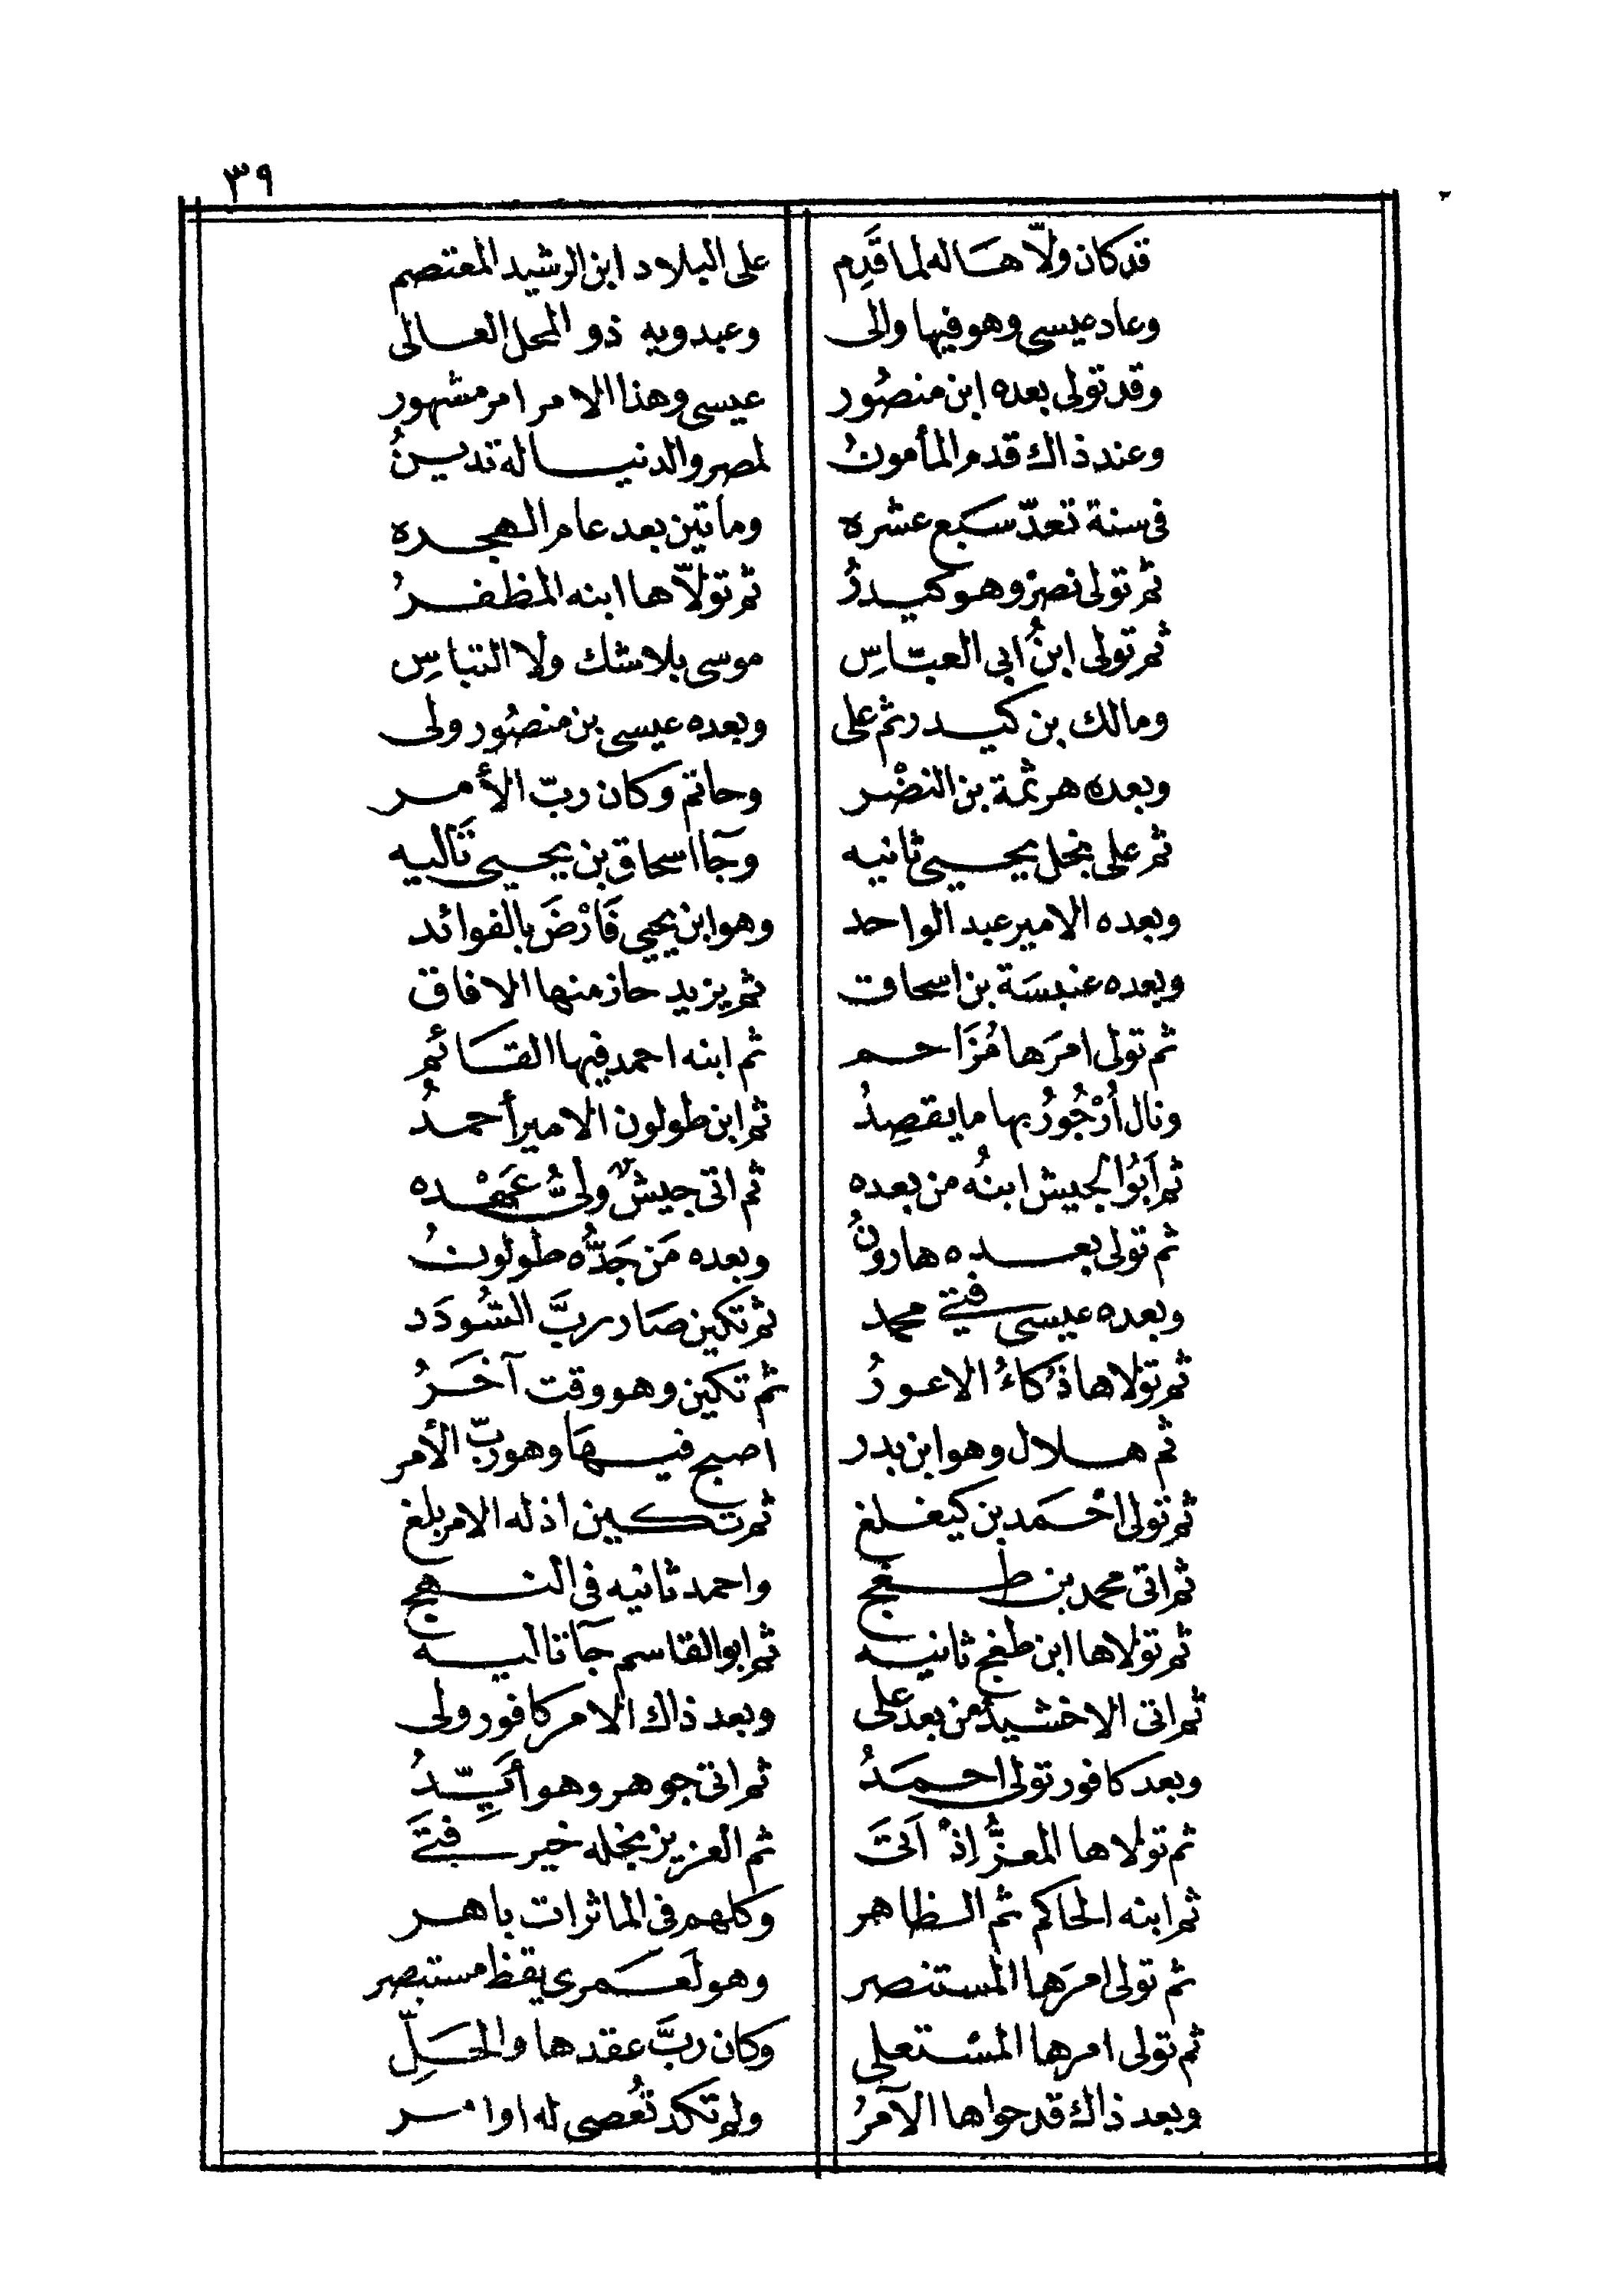 ٣٩
قد كان ولّا هاله لما قَدِم على البلاد ابن الرشيد المعتصم
وعاد عيسى وهو فيها والى وعبدويه ذو المحل العالى
وقد تولى بعده ابن منصُور عيسى وهذا الامر امر مشهور
وعند ذاك قدم المأمونُ لمصر والدنيا له تدينُ
فى سنة تعدّ سبع عشره ومأتين بعد عام الهجره
ثم تولى نصرٌ وهو كيدرُ ثم تولّاها ابنه المظفرُ
ثم تولى ابنُ ابى العبّاسِ موسى بلا شك ولا التباسِ
ومالك بن كيدر ثم على وبعده عيسى بن منصُور ولى
وبعده هرثمة بن النضْر وحاتم وكان ربّ الأمر
ثم على نجل يحيى ثانيه وجآ اسحاق بن يحيى ثَاليه
وبعده الامير عبد الواحد وهو ابن يحيى فَارْضَ بالفوائد
وبعده عنبسَة بن اسحاق ثم يزيد حاز منها الافاق
ثم تولى امرَها مُزَاحم ثم ابنه احمد فيها القَائم
ونال أُرْجُورُ بها ما يقصِدُ ثم ابن طولون الامير أحمدُ
ثم اَبُو الجيش ابنُه من بعده ثم اتى جيشٌ ولىُّ عَهْده
ثم تولى بعده هارونُ وبعده مَن جَدُّه طولونُ
وبعده عيسى فتى محمد ثم تكين صَار ربَّ السُّودَد
ثم تولاها ذُكاءُ الاعورُ ثم تكين وهو وقت آخَرُ
ثم هلال وهو ابن بدر اصبح فيهَا وهو ربّ الأمر
ثم تولى احْمَد بن كيغلغ ثم تكين اذ له الامر بلغ
ثم اتى محمد بن طغج واحمد ثانيه فى النهج
ثم تولاها ابن طغج ثانيه ثم ابو القاسم جآ تاليه
ثم اتى الاخشيدُ من بعد على وبعد ذاك الامر كافور ولى
وبعد كافور تولى احمَدُ ثم اتى جوهر وهو أيِّدُ
ثم تولاها المعزُّ اِذْ اَتىَ ثم العزيز نجله خير فتىَ
ثم ابنه الحاكم ثم الظاهر وكلهم فى الماثرات باهر
ثم تولى امرَها المستنصر وهو لَعَمرى يقظ مستبصر
ثم تولى امرها المسْتعلى وكان ربَّ عقدها والحَلِّ
وبعد ذاك قد حواها الآمرُ ولم تكد تُعصى له اوامر